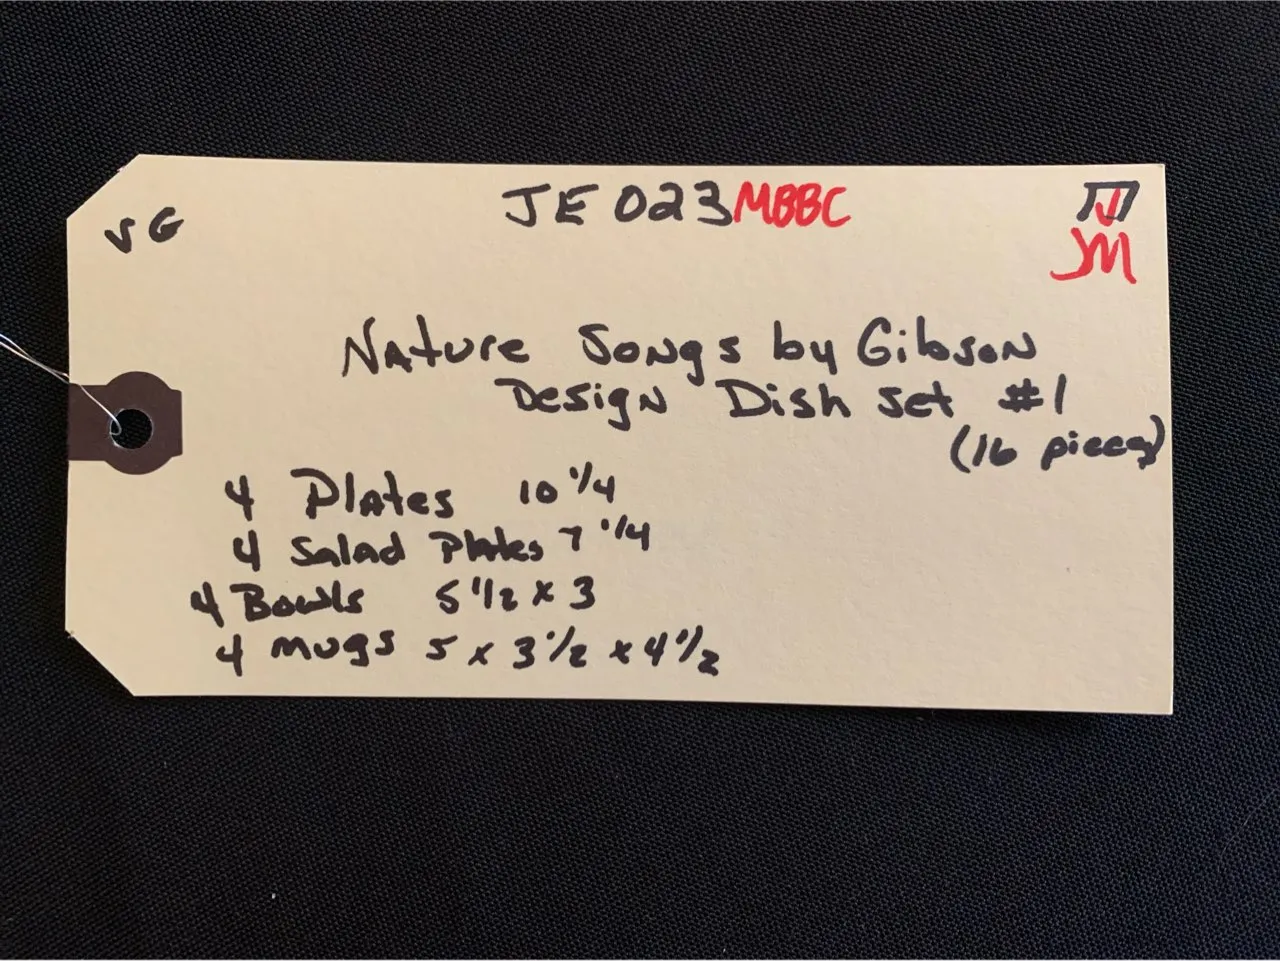 VG
JE023MBBC
J
JM
Nature Songs by Gibson
Design Dish set #1
(16 pieces)
4 Plates 10 1/4
4 Salad Plates 7 1/4
4 Bowls 5 1/2 x 3
4 mugs 5 x 3 1/2 x 4 1/2